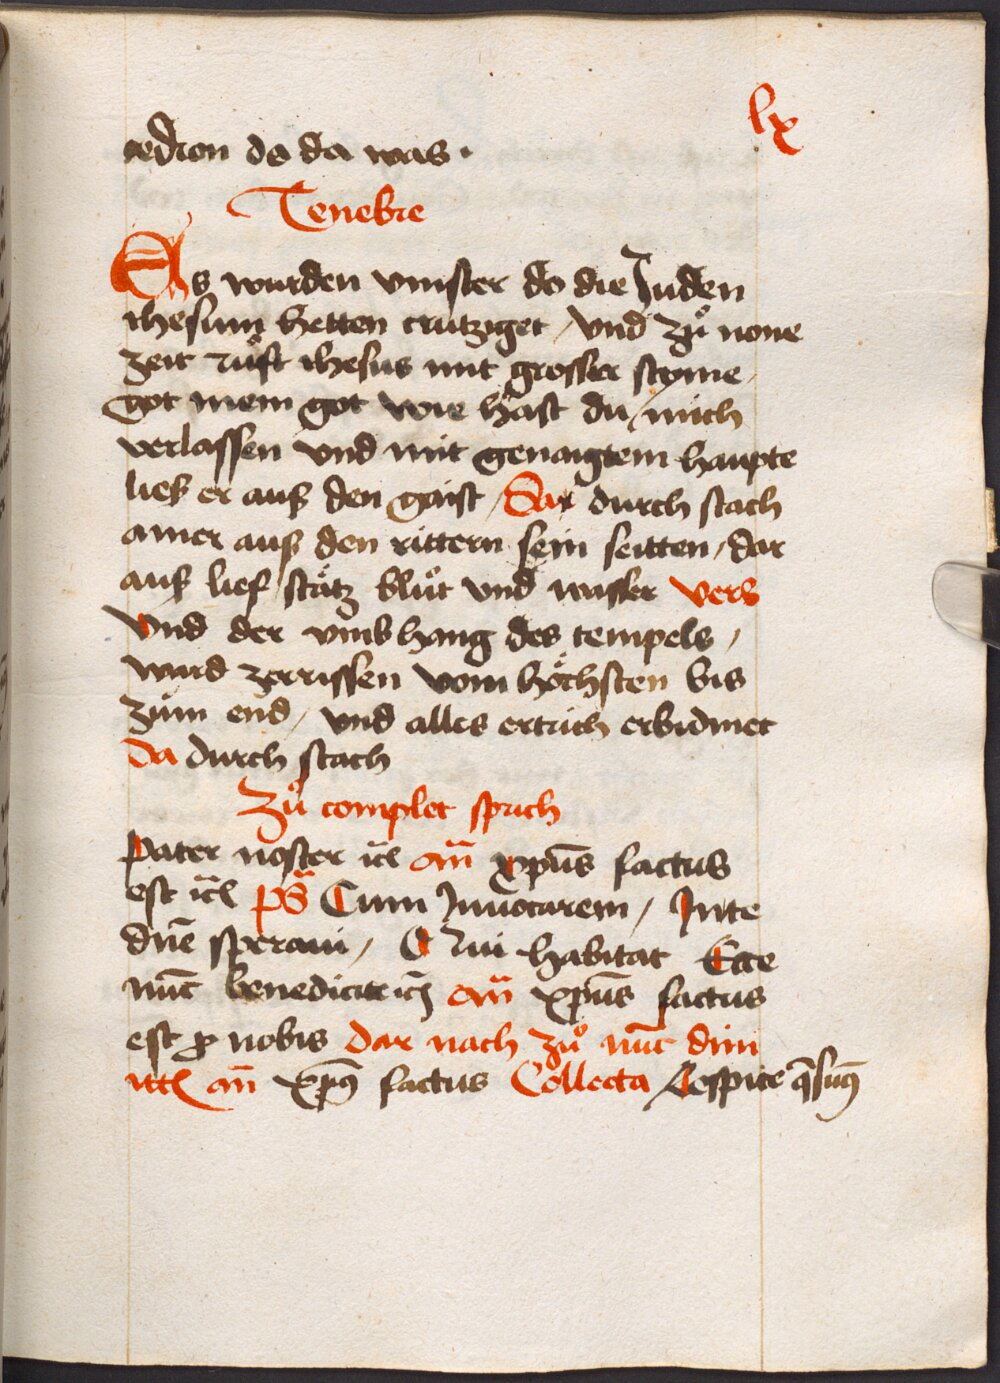 lx
cedron do da was .
Tenebre
Es wurden vinster do die Juden
ihesum hetten crutziget / vnd zuͦ none
zeit ruͤfft ihesus mit grosser styme /
got mein got wie hast du mich
verlassen vnd mit genaigtem haupte
ließ er auß den gaist / Dar durch stach
ainer auß den rittern sein seitten / dar
auß lieff staͤtz bluͦt vnd wasser vers
Vnd der vmbhang des tempels /
ward zerrissen vom hoͤchsten bis
zuͦm end / vnd alles ertrich erbidmet
Da durch stach
Zuͦ complet sprich
Pater noster ic̃ an̄ xp̄us factus
est ic̃ ps̄ Cum Jnuocarem / Jn te
dn̄e speraui / Qui habitat Ecce
nūc benedicite ic̃ an̄ xp̄us factus
est ꝓ nobis dar nach zuͦ nūc dimi
ittis an̄ xp̄ꝰ factus Collecta Respice q̄sumꝰ